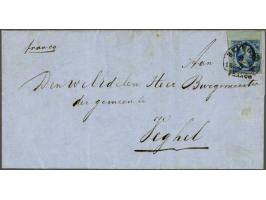 franco
Aan
Den Wel.Ed. den Heer Burgemeester
der gemeente
Veghel